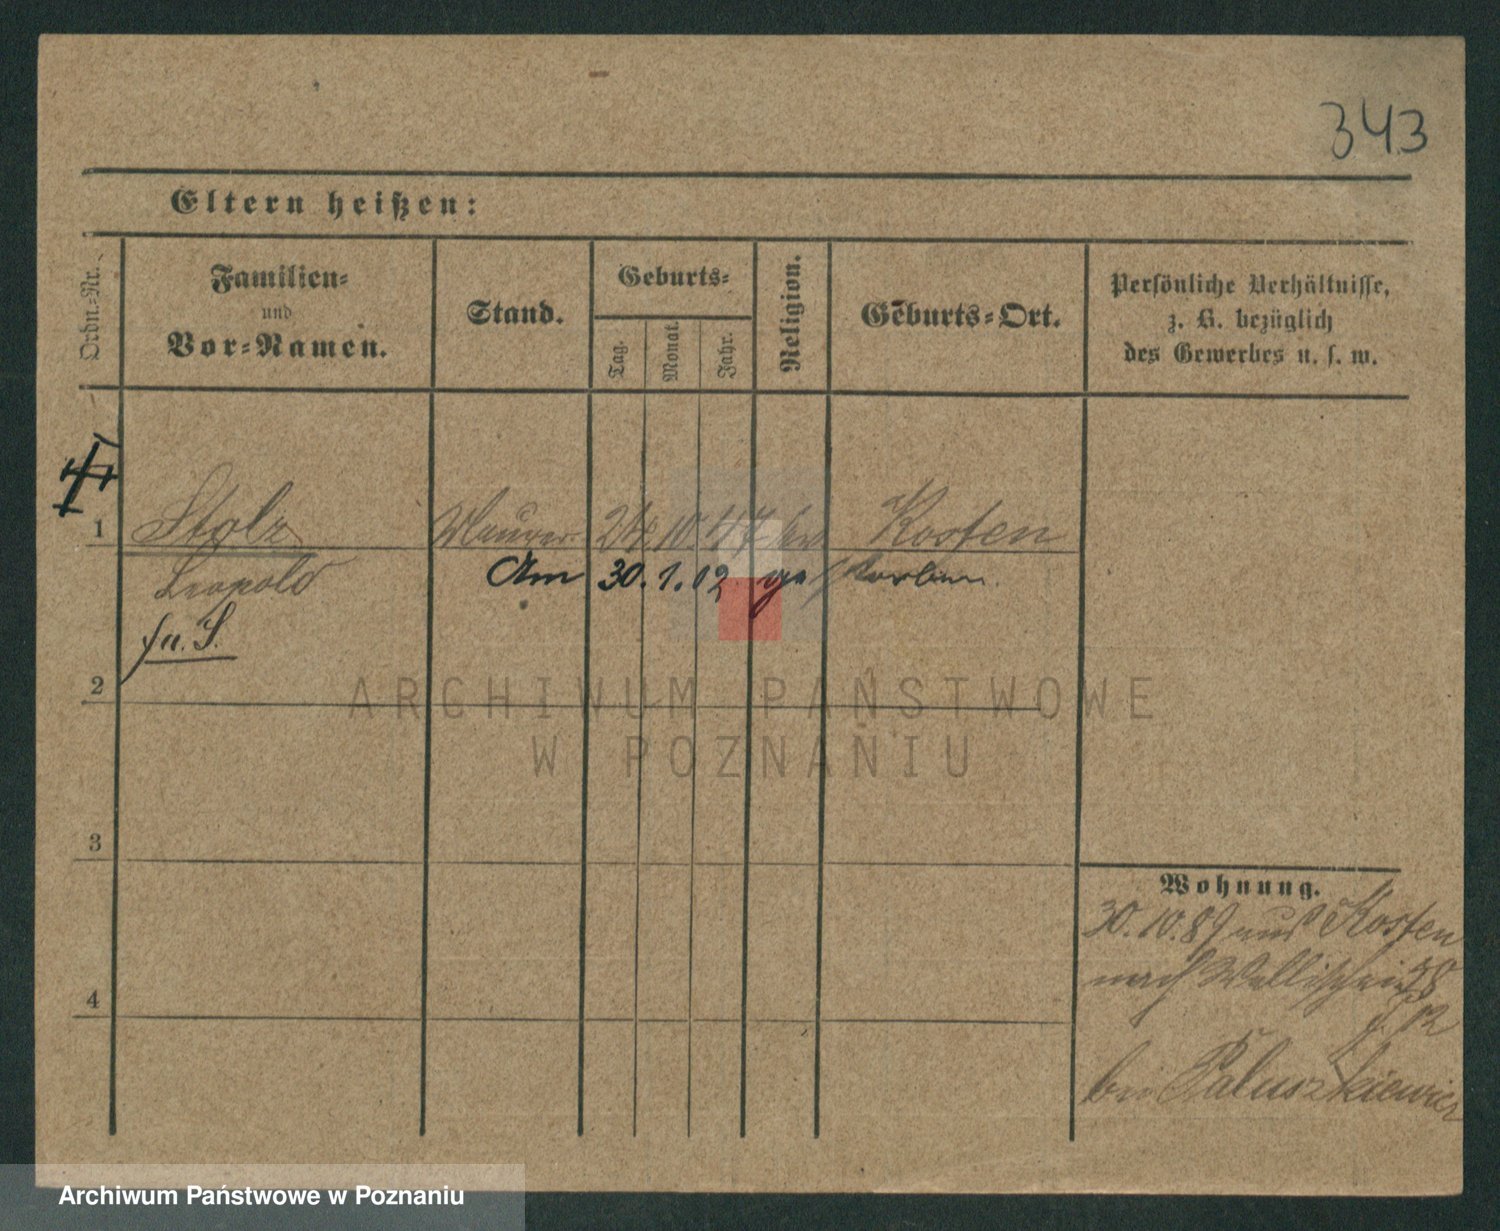 343
Eltern heißen:
Ordn.-Nr.
Familien-
und
Vor-Namen.
Stand.
Geburts-
Tag.
Monat.
Jahr.
Religion.
Geburts-Ort.
Persönliche Verhältnisse,
z. B. bezüglich
des Gewerbes u. s. w.
1 Stolz Maurer 24 10 47 Kosten
Leopold Am 30.1.02 gestorben.
2
ARCHIWUM PAŃSTWOWE
W POZNANIU
3
4
Wohnung.
30.10.89 aus Kosten
nach Wallischei 78
bei Paluszkiewicz
Archiwum Państwowe w Poznaniu